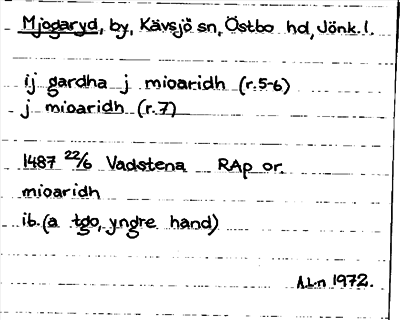 Mjogaryd, by, Kävsjö sn, Östbo hd, Jönk. l.
ij gardha j mioaridh (r.5-6)
j mioaridh (r.7)
1487 22/6 Vadstena RAp or.
mioaridh
ib. (a tgo, yngre hand)
A.L-n 1972.